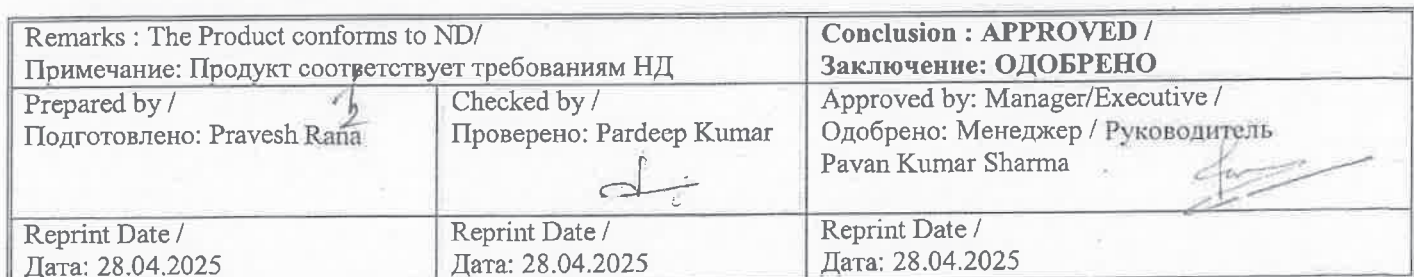 Remarks : The Product conforms to ND/
Примечание: Продукт соответствует требованиям НД
Conclusion : APPROVED /
Заключение: ОДОБРЕНО
Prepared by /
Подготовлено: Pravesh Rana
Checked by /
Проверено: Pardeep Kumar
Approved by: Manager/Executive /
Одобрено: Менеджер / Руководитель
Pavan Kumar Sharma
Reprint Date /
Дата: 28.04.2025
Reprint Date /
Дата: 28.04.2025
Reprint Date /
Дата: 28.04.2025